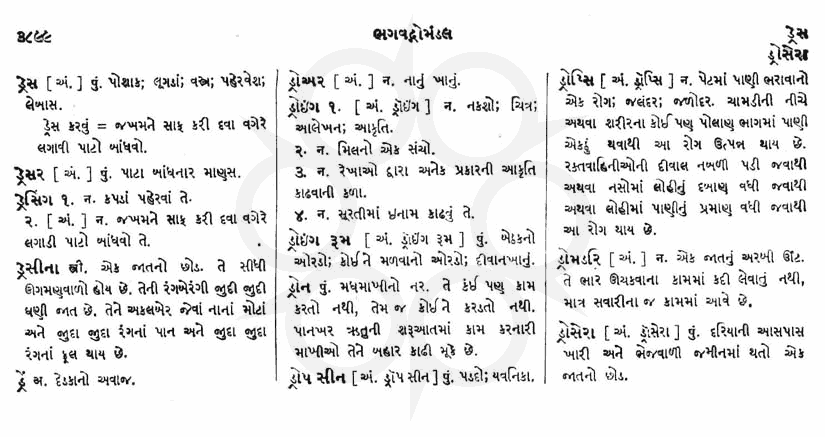 ૩૮૯૯
ભગવદ્ગોમંડલ
ડ્રેસ
ડ્રોસેરા
ડ્રેસ [ અં. ] પું. પોશાક; લૂગડાં; વસ્ત્ર; પહેરવેશ;
લેબાસ.
ડ્રેસ કરવું = જખમને સાફ કરી દવા વગેરે
લગાવી પાટો બાંધવો.
ડ્રેસર [ અં. ] પું. પાટા બાંધનાર માણસ.
ડ્રેસિંગ ૧. ન. કપડાં પહેરવાં તે.
૨. [ અં. ] ન. જખમને સાફ કરી દવા વગેરે
લગાડી પાટો બાંધવો તે.
ડ્રેસીના સ્ત્રી. એક જાતનો છોડ. તે સીધી
ઊગમણવાળી હોય છે. તેની રંગબેરંગી જુદી જુદી
ઘણી જાત છે. તેને અકલબેર જેવાં નાનાં મોટાં
અને જુદા જુદા રંગનાં પાન અને જુદા જુદા
રંગનાં ફૂલ થાય છે.
ડ્રેં અ. દેડકાનો અવાજ.
ડ્રોઅર [ અં. ] ન. નાનું ખાનું.
ડ્રોઇંગ ૧. [ અં. ડ્રૉઇંગ ] ન. નકશો; ચિત્ર;
આલેખન; આકૃતિ.
૨. ન. મિલનો એક સંચો.
૩. ન. રેખાઓ દ્વારા અનેક પ્રકારની આકૃતિ
કાઢવાની કળા.
૪. ન. સૂરતીમાં ઇનામ કાઢવું તે.
ડ્રોઇંગ રૂમ [ અં. ડ્રૉઇંગ રૂમ ] પું. બેઠકનો
ઓરડો; કોઈને મળવાનો ઓરડો; દીવાનખાનું.
ડ્રોન પું. મધમાખીનો નર. તે કંઈ પણ કામ
કરતો નથી, તેમ જ કોઈને કરડતો નથી.
પાનખર ઋતુની શરૂઆતમાં કામ કરનારી
માખીઓ તેને બહાર કાઢી મૂકે છે.
ડ્રોપ સીન [ અં. ડ્રૉપ સીન ] પું. પડદો; યવનિકા.
ડ્રોપ્સિ [ અં. ડ્રૉપ્સિ ] ન. પેટમાં પાણી ભરાવાનો
એક રોગ; જલંદર; જળોદર. ચામડીની નીચે
અથવા શરીરના કોઈ પણ પોલાણ ભાગમાં પાણી
એકઠું થવાથી આ રોગ ઉત્પન્ન થાય છે.
રક્તવાહિનીઓની દીવાલ નબળી પડી જવાથી
અથવા નસોમાં લોહીનું દબાણ વધી જવાથી
અથવા લોહીમાં પાણીનું પ્રમાણ વધી જવાથી
આ રોગ થાય છે.
ડ્રોમડરિ [ અં. ] ન. એક જાતનું અરબી ઊંટ.
તે ભાર ઊચકવાના કામમાં કદી લેવાતું નથી,
માત્ર સવારીના જ કામમાં આવે છે.
ડ્રોસેરા [ અં. ડ્રૉસેરા ] પું. દરિયાની આસપાસ
ખારી અને ભેજવાળી જમીનમાં થતો એક
જાતનો છોડ.